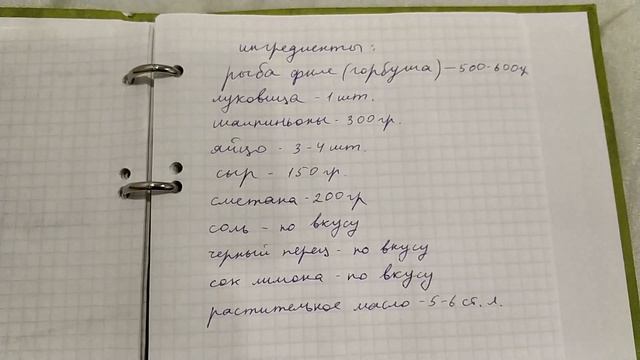 ингредиенты:
рыба филе (горбуша) - 500-600г
луковица - 1 шт.
шампиньоны - 300 гр.
яйцо - 3-4 шт.
сыр - 150 гр.
сметана - 200 гр
соль - по вкусу
черный перец - по вкусу
сок лимона - по вкусу
растительное масло - 5-6 ст. л.